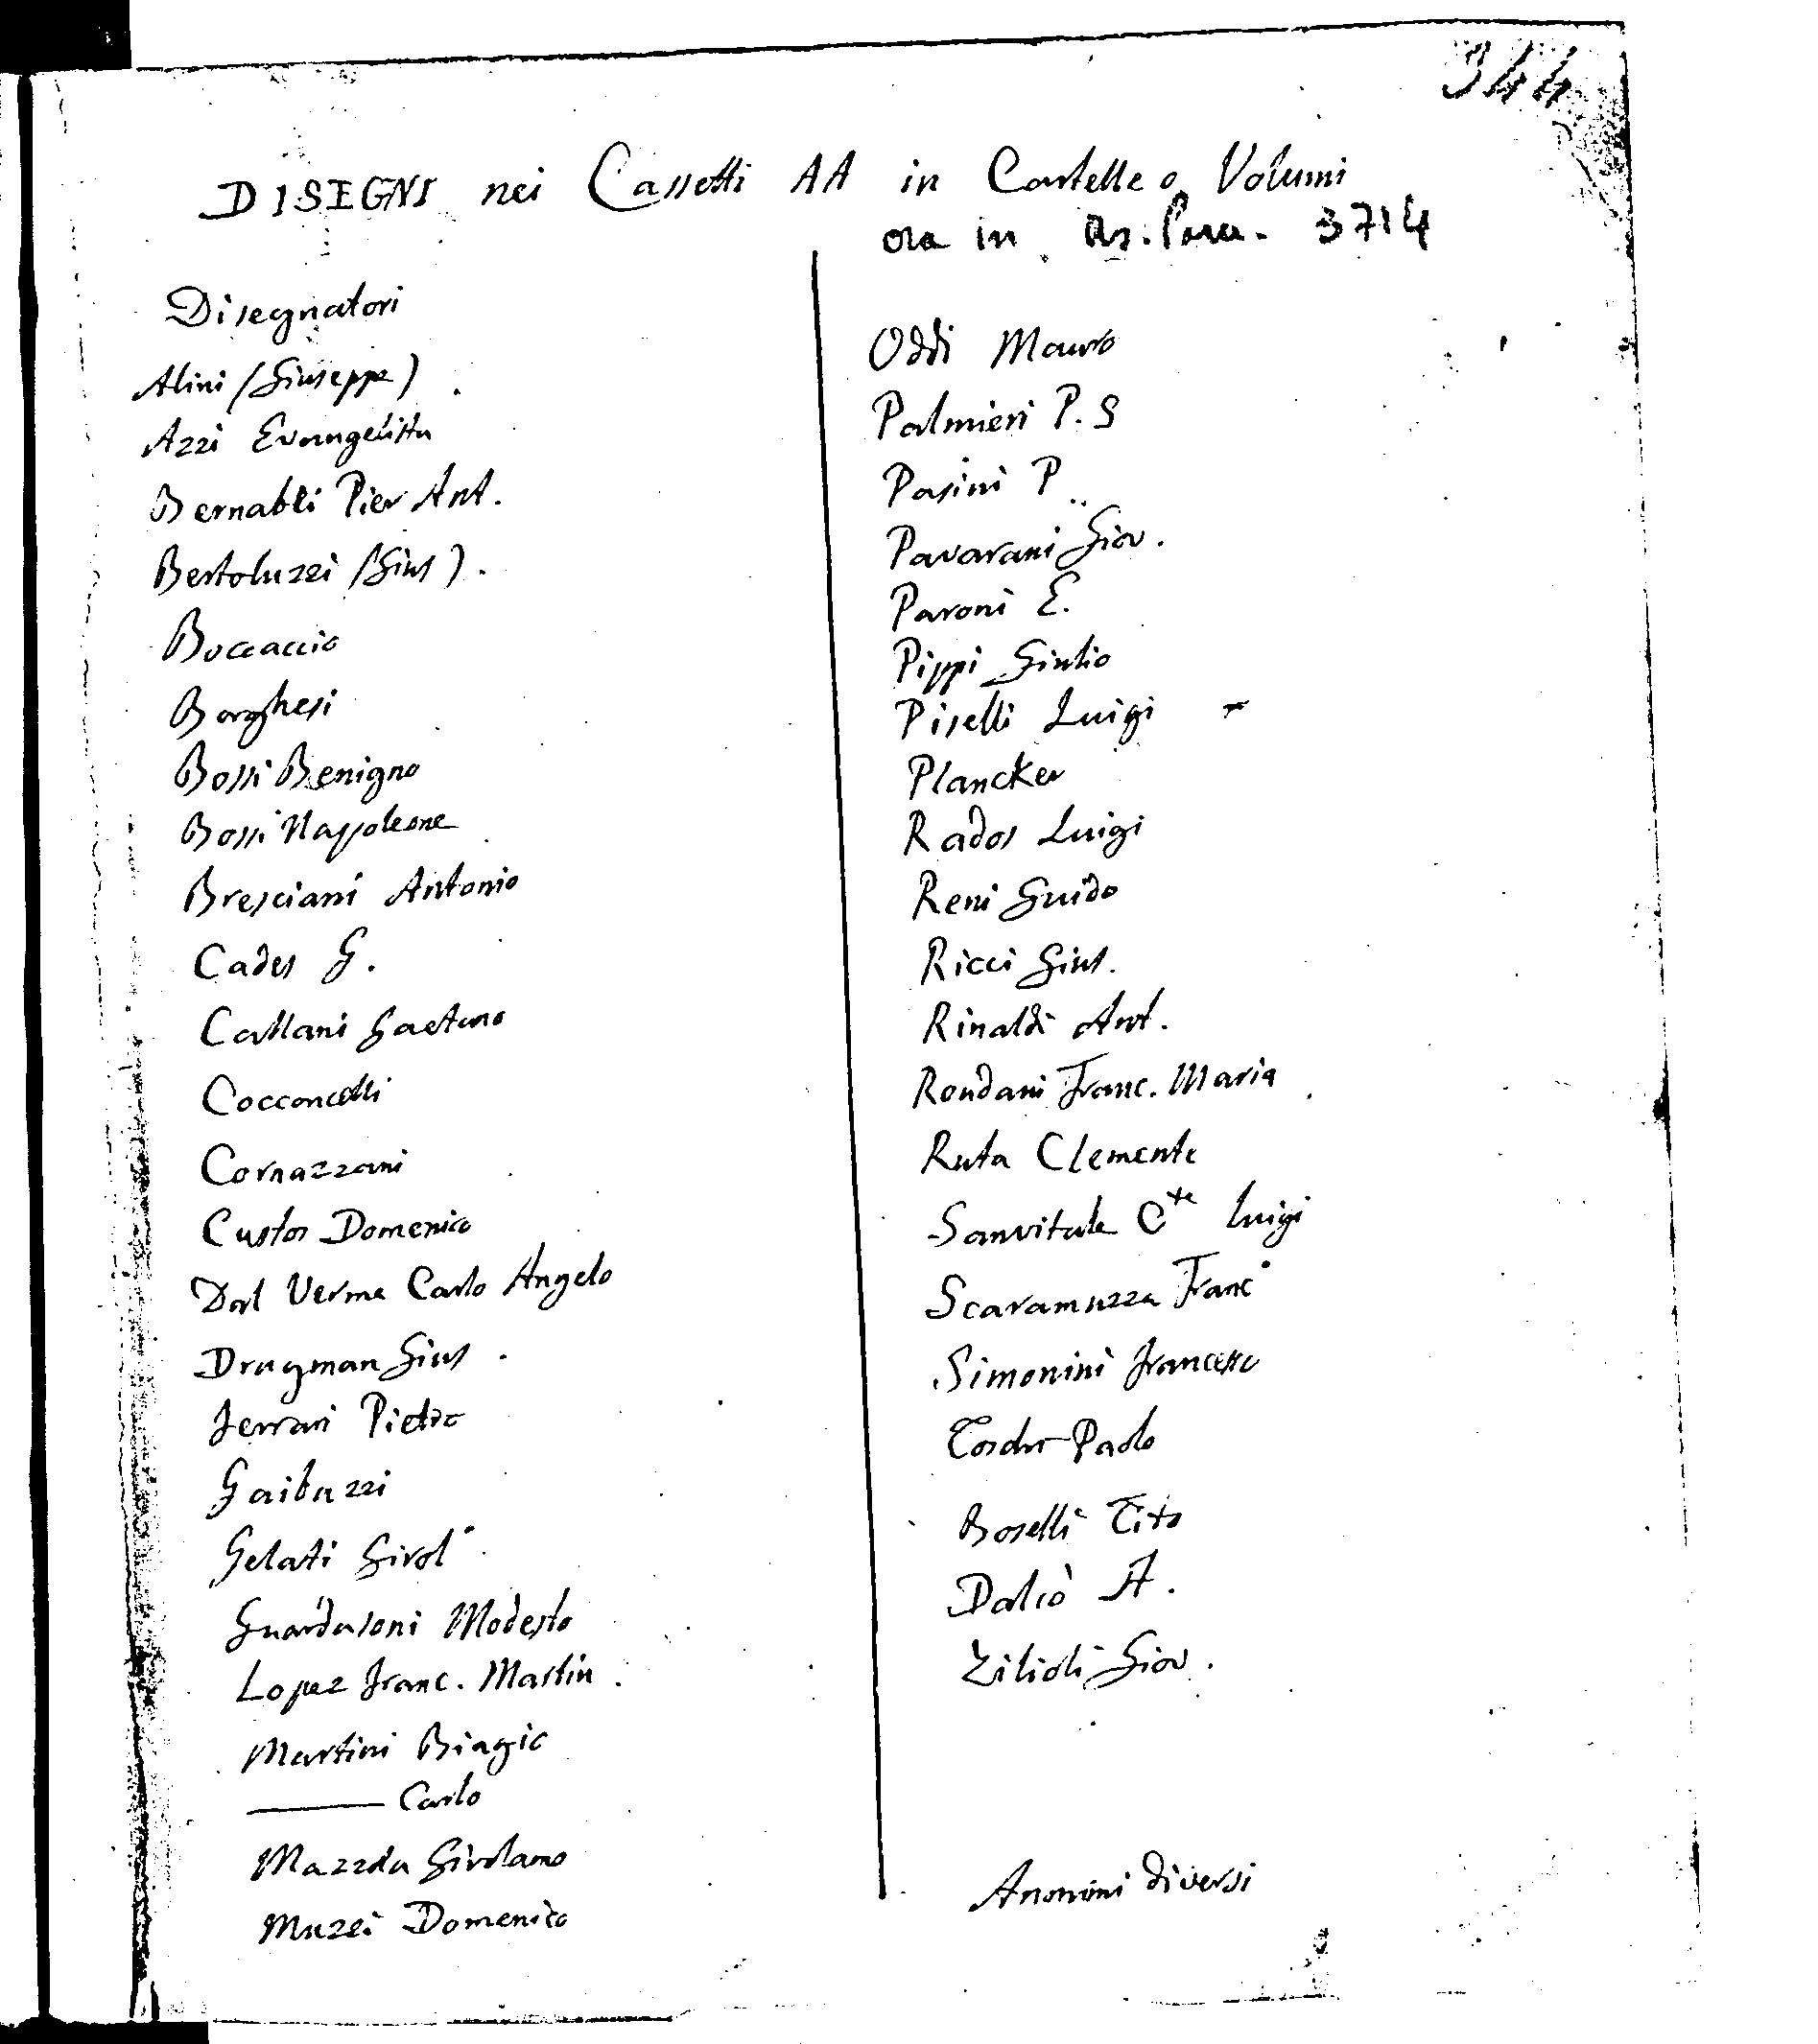 344
DISEGNI nei Cassetti AA in Cartelle o Volumi
ora in Ms. Parm. 3714
Disegnatori
Alini (Giuseppe)
Azzi Evangelista
Bernabei Pier Ant.
Bertoluzzi (Gius).
Boccaccio
Borghesi
Bossi Benigno
Bossi Nappoleone
Bresciani Antonio
Cades G.
Callani Gaetano
Cocconcelli
Cornazzani
Custos Domenico
Dal Verme Carlo Angelo
Drugman Gius.
Ferrari Pietro
Gaibazzi
Gelati Girol°
Guardasoni Modesto
Lopez Franc. Martin.
Martini Biagio
——— Carlo
Mazzola Girolamo
Muzzi Domenico
Oddi Mauro
Palmieri P. S
Pasini P..
Pavarani Giov.
Paroni E.
Pippi Giulio
Piselli Luigi
Plancker
Rados Luigi
Reni Guido
Ricci Gius.
Rinaldi Ant.
Rondani Franc. Maria
Ruta Clemente
Sanvitale Cte Luigi
Scaramuzza Franc°
Simonini Francesco
Toschi Paolo
Boselli Tito
Dalcò A.
Zilioli Giov.
Anonimi diversi